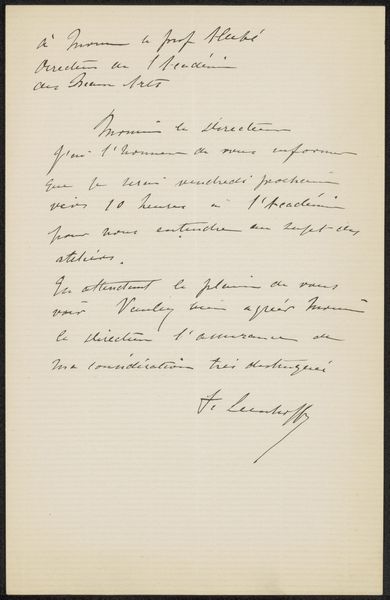 à Monsieur le prof Allebé
Directeur de l'Académie
des Beaux Arts
Monsieur le Directeur
J'ai l'honneur de vous informer
que je serai vendredi prochain
vers 10 heures à l'Académie
pour vous entendre au sujet des
ateliers.
En attendant le plaisir de vous
voir Veuillez bien agréer Monsieur
le directeur l'assurance de
ma considération très distinguée
F. Leenhoff